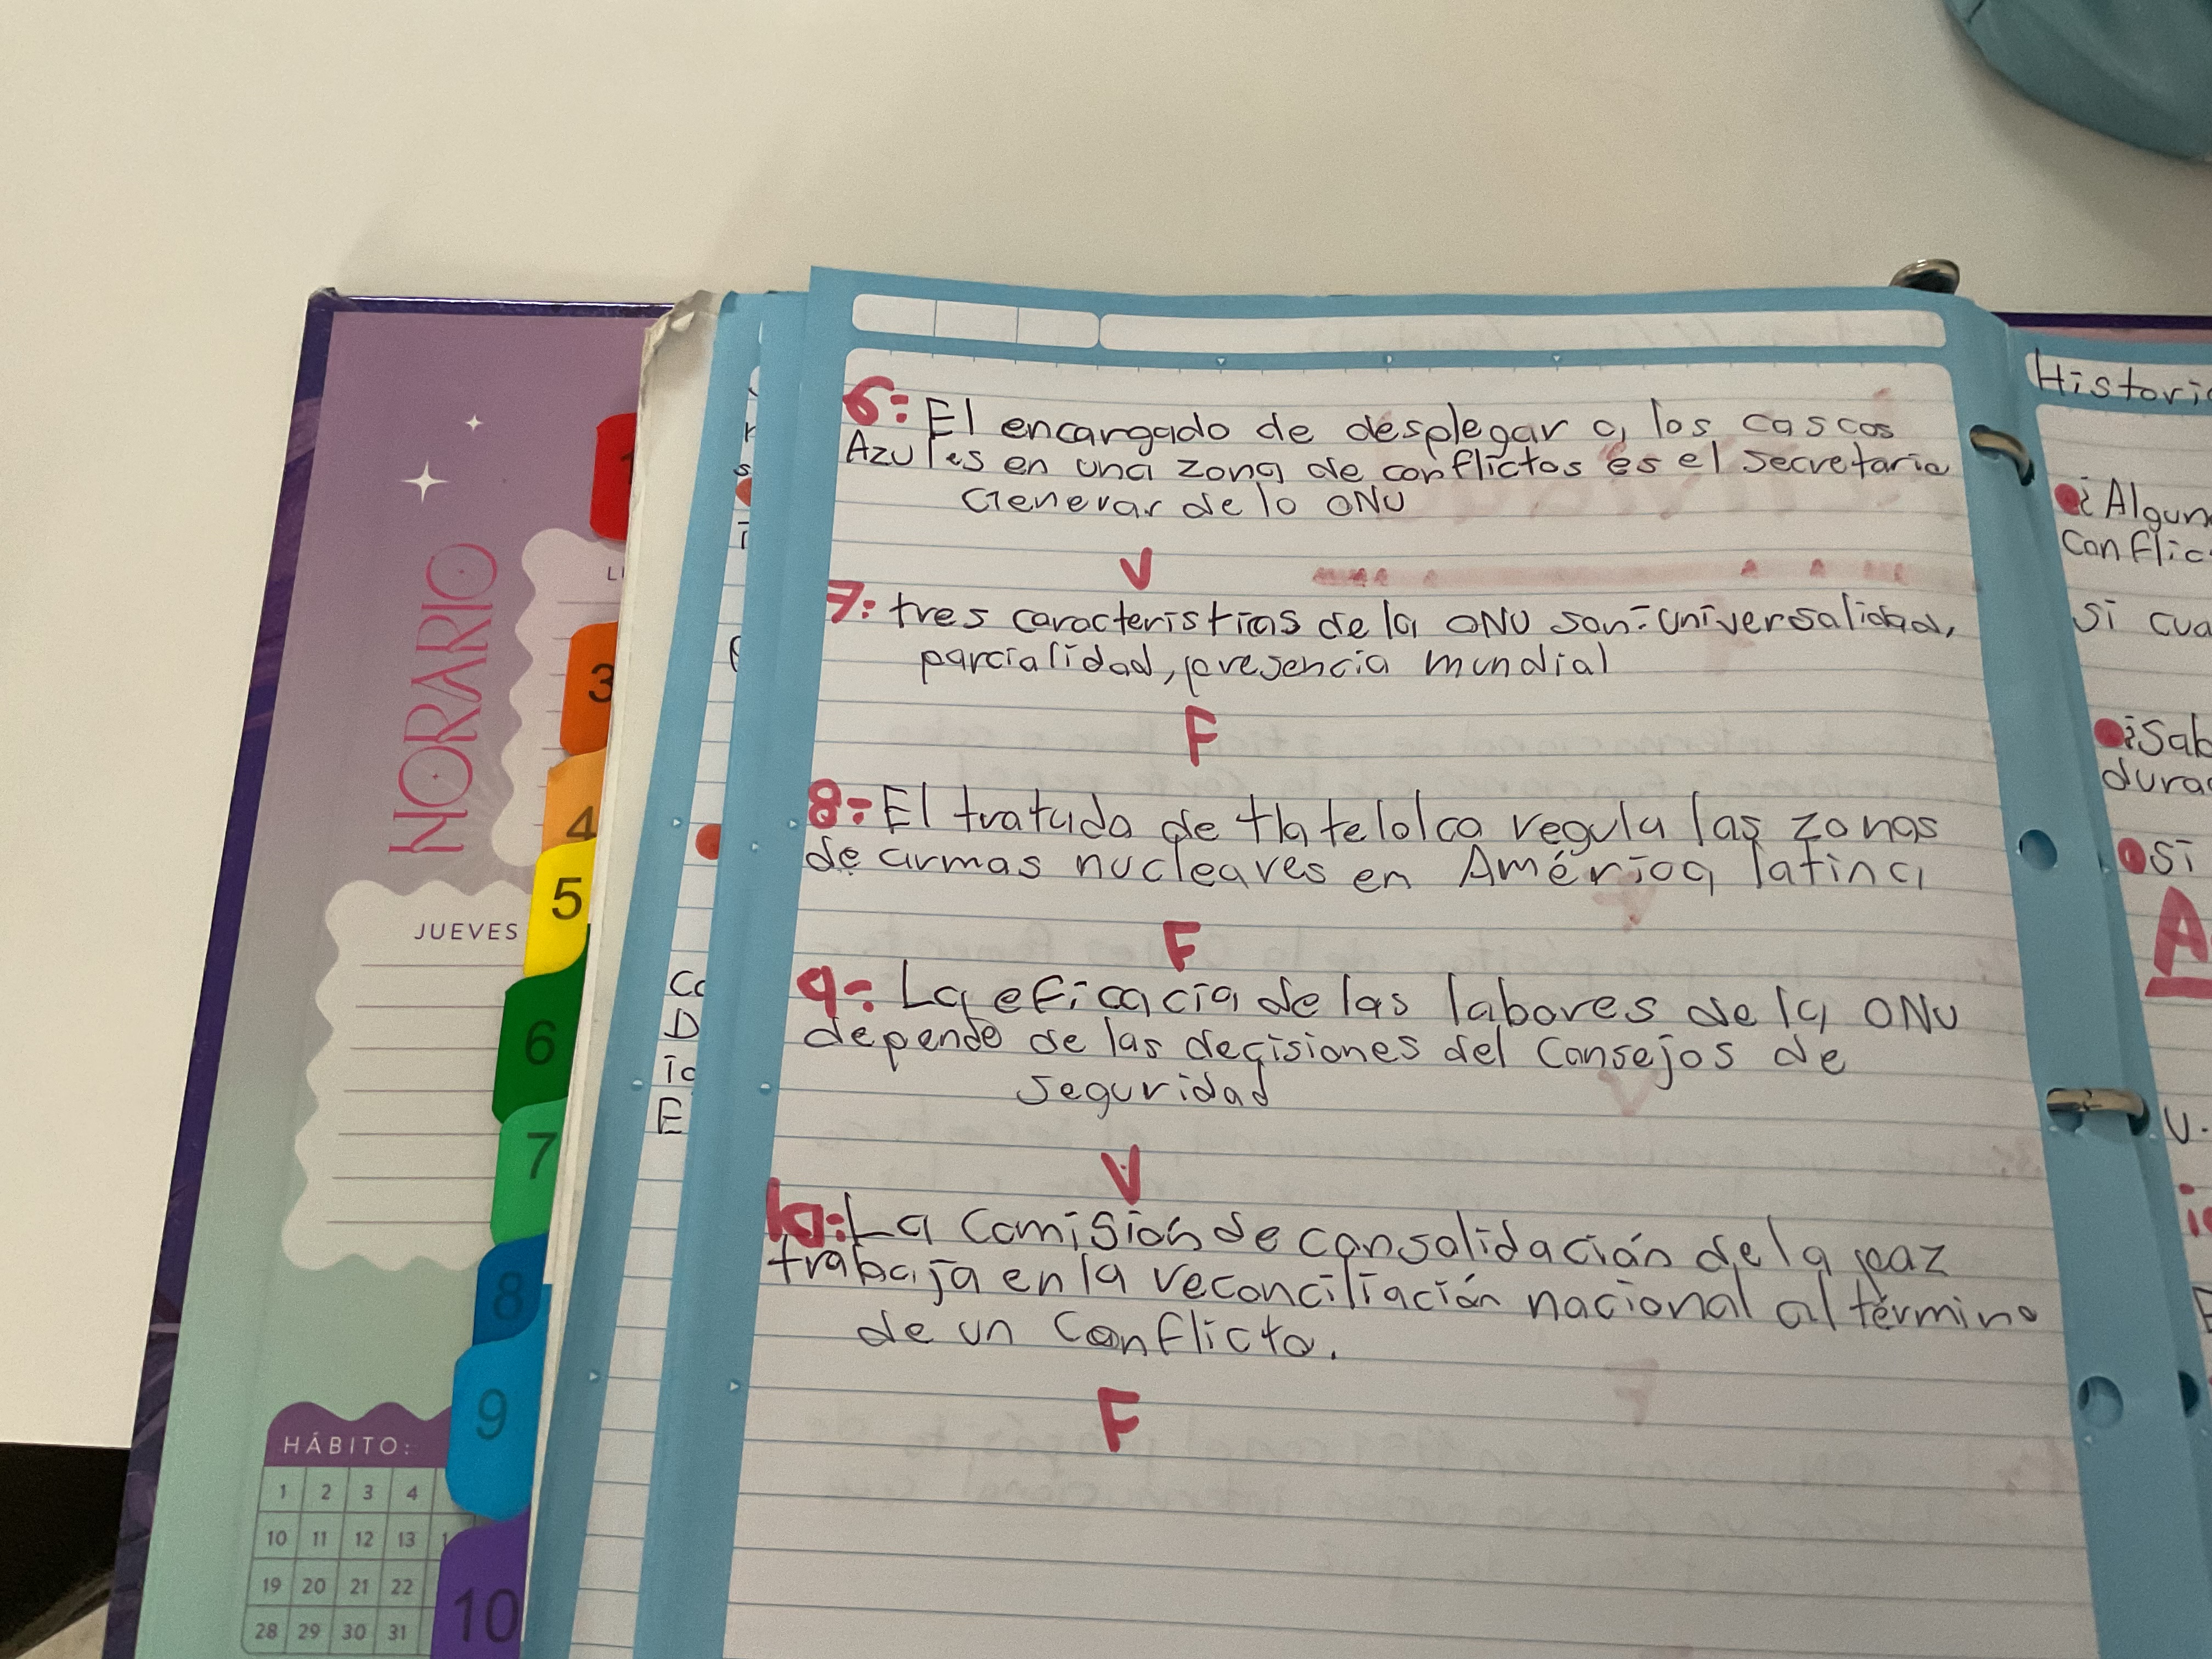 HORARIO
LU
JUEVES
HÁBITO:
1 2 3 4
10 11 12 13 1
19 20 21 22
28 29 30 31
1
3
4
5
6
7
8
9
10
Co
D
E
6: El encargado de desplegar a los cascos
Azules en una zona de conflictos es el secretario
Generar de lo ONU
V
7: tres caracteristicas de la ONU son: universalidad,
parcialidad, presencia mundial
F
8: El tratado de tlatelolco regula las zonas
de armas nucleares en América latina
F
9: La eficacia de las labores de la ONU
depende de las decisiones del Consejos de
seguridad
V
10: La Comisión de consolidación de la paz
trabaja en la reconciliación nacional al término
de un Conflicto.
F
Histori
¿Algun
Conflic
Si cua
¿Sab
dura
Si
A
U.